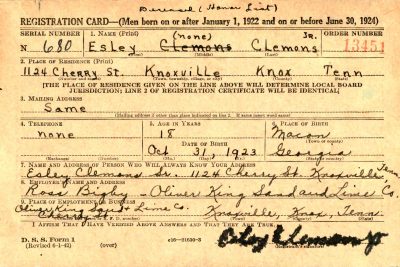 Deceased (Honor List)
REGISTRATION CARD—(Men born on or after January 1, 1922 and on or before June 30, 1924)
SERIAL NUMBER 1. NAME (Print) ORDER NUMBER
(none) JR.
N 680 Esley Clemons Clemons 13451
(First) (Middle) (Last)
2. PLACE OF RESIDENCE (Print)
1124 Cherry St. Knoxville Knox Tenn
(Number and street) (Town, township, village, or city) (County) (State)
[THE PLACE OF RESIDENCE GIVEN ON THE LINE ABOVE WILL DETERMINE LOCAL BOARD
JURISDICTION; LINE 2 OF REGISTRATION CERTIFICATE WILL BE IDENTICAL]
3. MAILING ADDRESS
Same
(Mailing address if other than place indicated on line 2. If same insert word same)
4. TELEPHONE 5. AGE IN YEARS 6. PLACE OF BIRTH
none 18 Macon
DATE OF BIRTH (Town or county)
Oct 31, 1923 Georgia
(Exchange) (Number) (Mo.) (Day) (Yr.) (State or country)
7. NAME AND ADDRESS OF PERSON WHO WILL ALWAYS KNOW YOUR ADDRESS
Esley Clemons Sr. 1124 Cherry St. Knoxville Tenn
8. EMPLOYER'S NAME AND ADDRESS
Oliver King Sand and Lime Co.
9. PLACE OF EMPLOYMENT OR BUSINESS
Oliver King Sand & Lime Co.
Cherry St. Knoxville, Knox, Tenn.
(Number and street or R. F. D. number) (Town) (County) (State)
I AFFIRM THAT I HAVE VERIFIED ABOVE ANSWERS AND THAT THEY ARE TRUE.
D. S. S. Form 1
(Revised 6-1-42) (over) c16—21630-3
Esley Clemons Jr